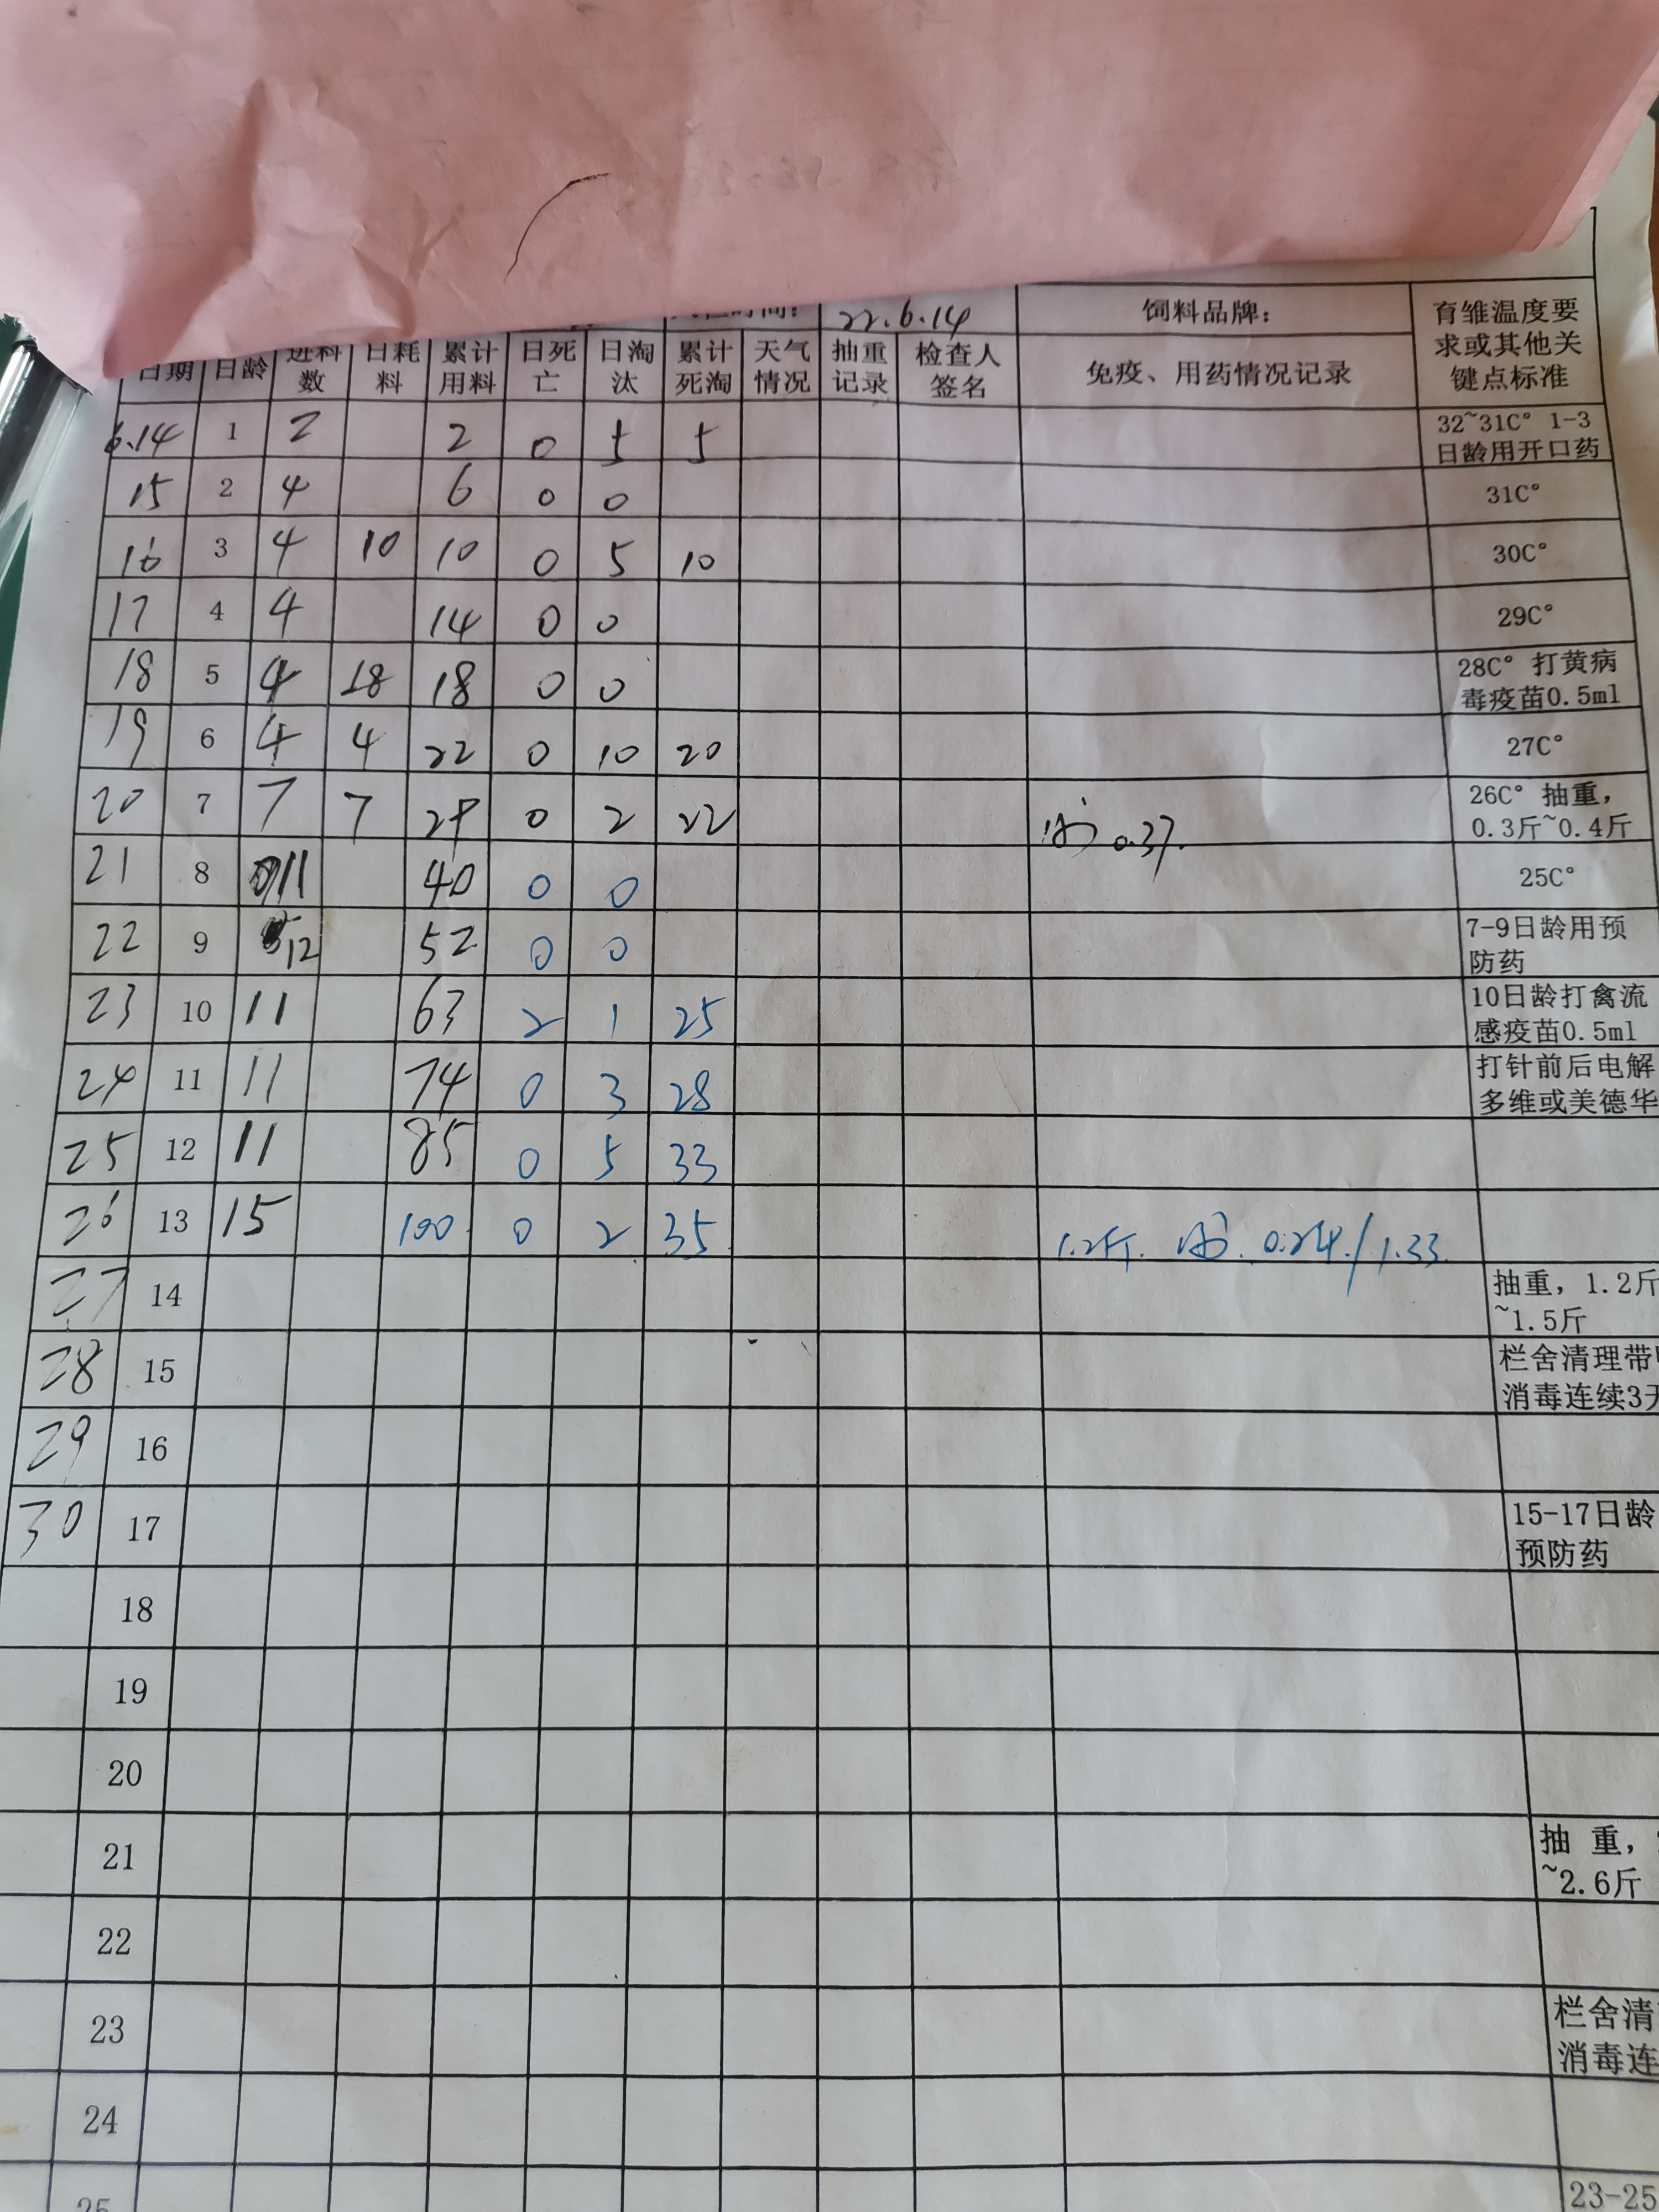 22.6.14 饲料品牌： 育雏温度要
求或其他关
键点标准
日期 日龄 进料数 日耗料 累计用料 日死亡 日淘汰 累计死淘 天气情况 抽重记录 检查人签名 免疫、用药情况记录
6.14 1 2 2 0 5 5 32~31C° 1-3
日龄用开口药
15 2 4 6 0 0 31C°
16 3 4 10 10 0 5 10 30C°
17 4 4 14 0 0 29C°
18 5 4 18 18 0 0 28C° 打黄病
毒疫苗0.5ml
19 6 4 4 22 0 10 20 27C°
20 7 7 7 29 0 2 22 0.37. 26C° 抽重，
0.3斤~0.4斤
21 8 11 40 0 0 25C°
22 9 12 52 0 0 7-9日龄用预
防药
23 10 11 63 2 1 25 10日龄打禽流
感疫苗0.5ml
24 11 11 74 0 3 28 打针前后电解
多维或美德华
25 12 11 85 0 5 33
26 13 15 100 0 2 35 1.2斤. /1.33.
27 14 抽重，1.2斤
~1.5斤
28 15 栏舍清理带
消毒连续3天
29 16
30 17 15-17日龄
预防药
18
19
20
21 抽 重，
~2.6斤
22
23 栏舍清
消毒连
24
25 23-25